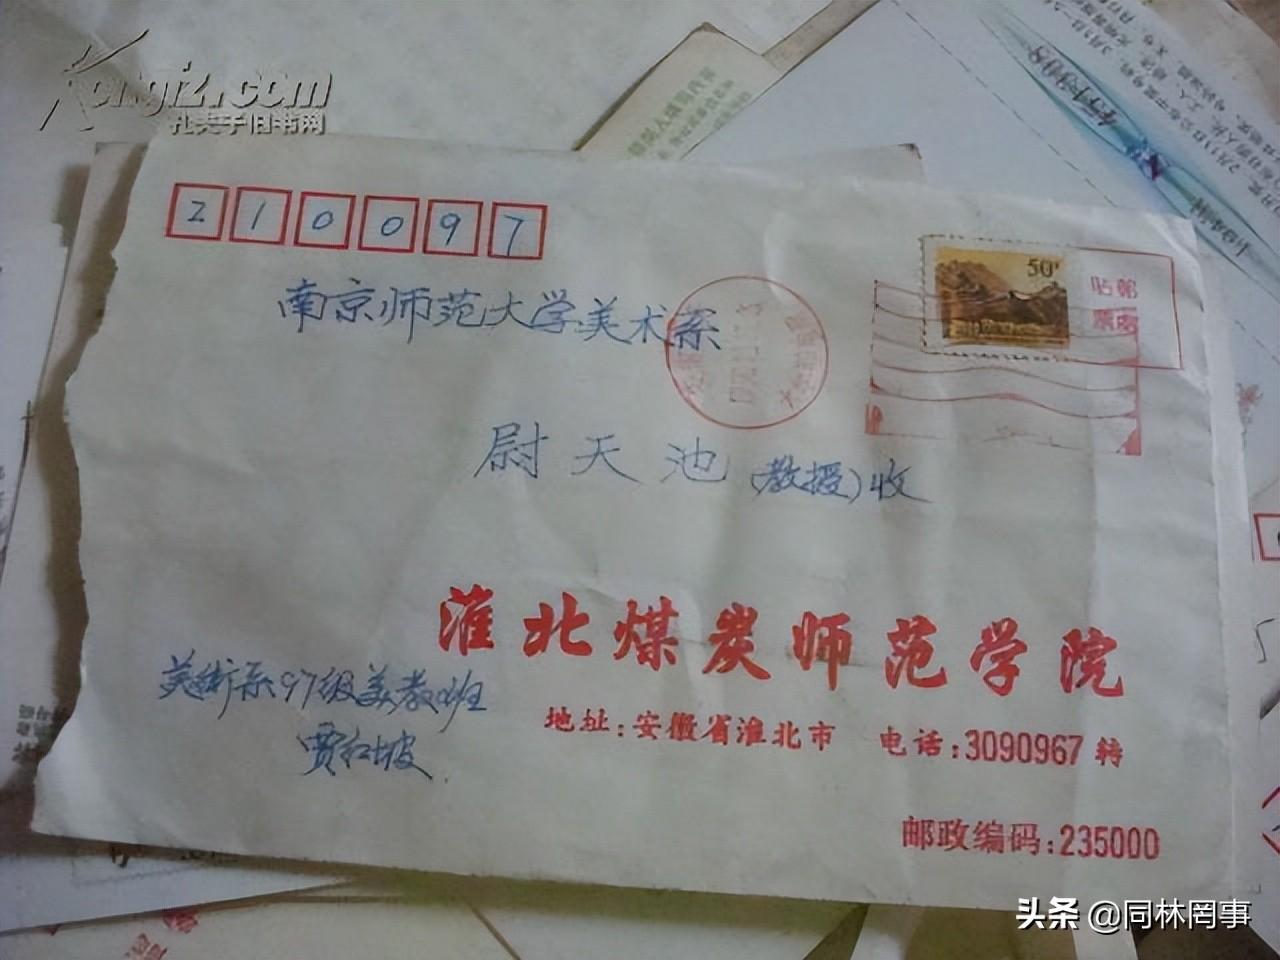 Kongfz.com
孔夫子旧书网
210097
50
邮票
贴
南京师范大学美术系
尉天池(教授)收
淮北煤炭师范学院
美术系97级美教班
贾红坡
地址:安徽省淮北市 电话:3090967转
邮政编码:235000
头条 @同林罔事